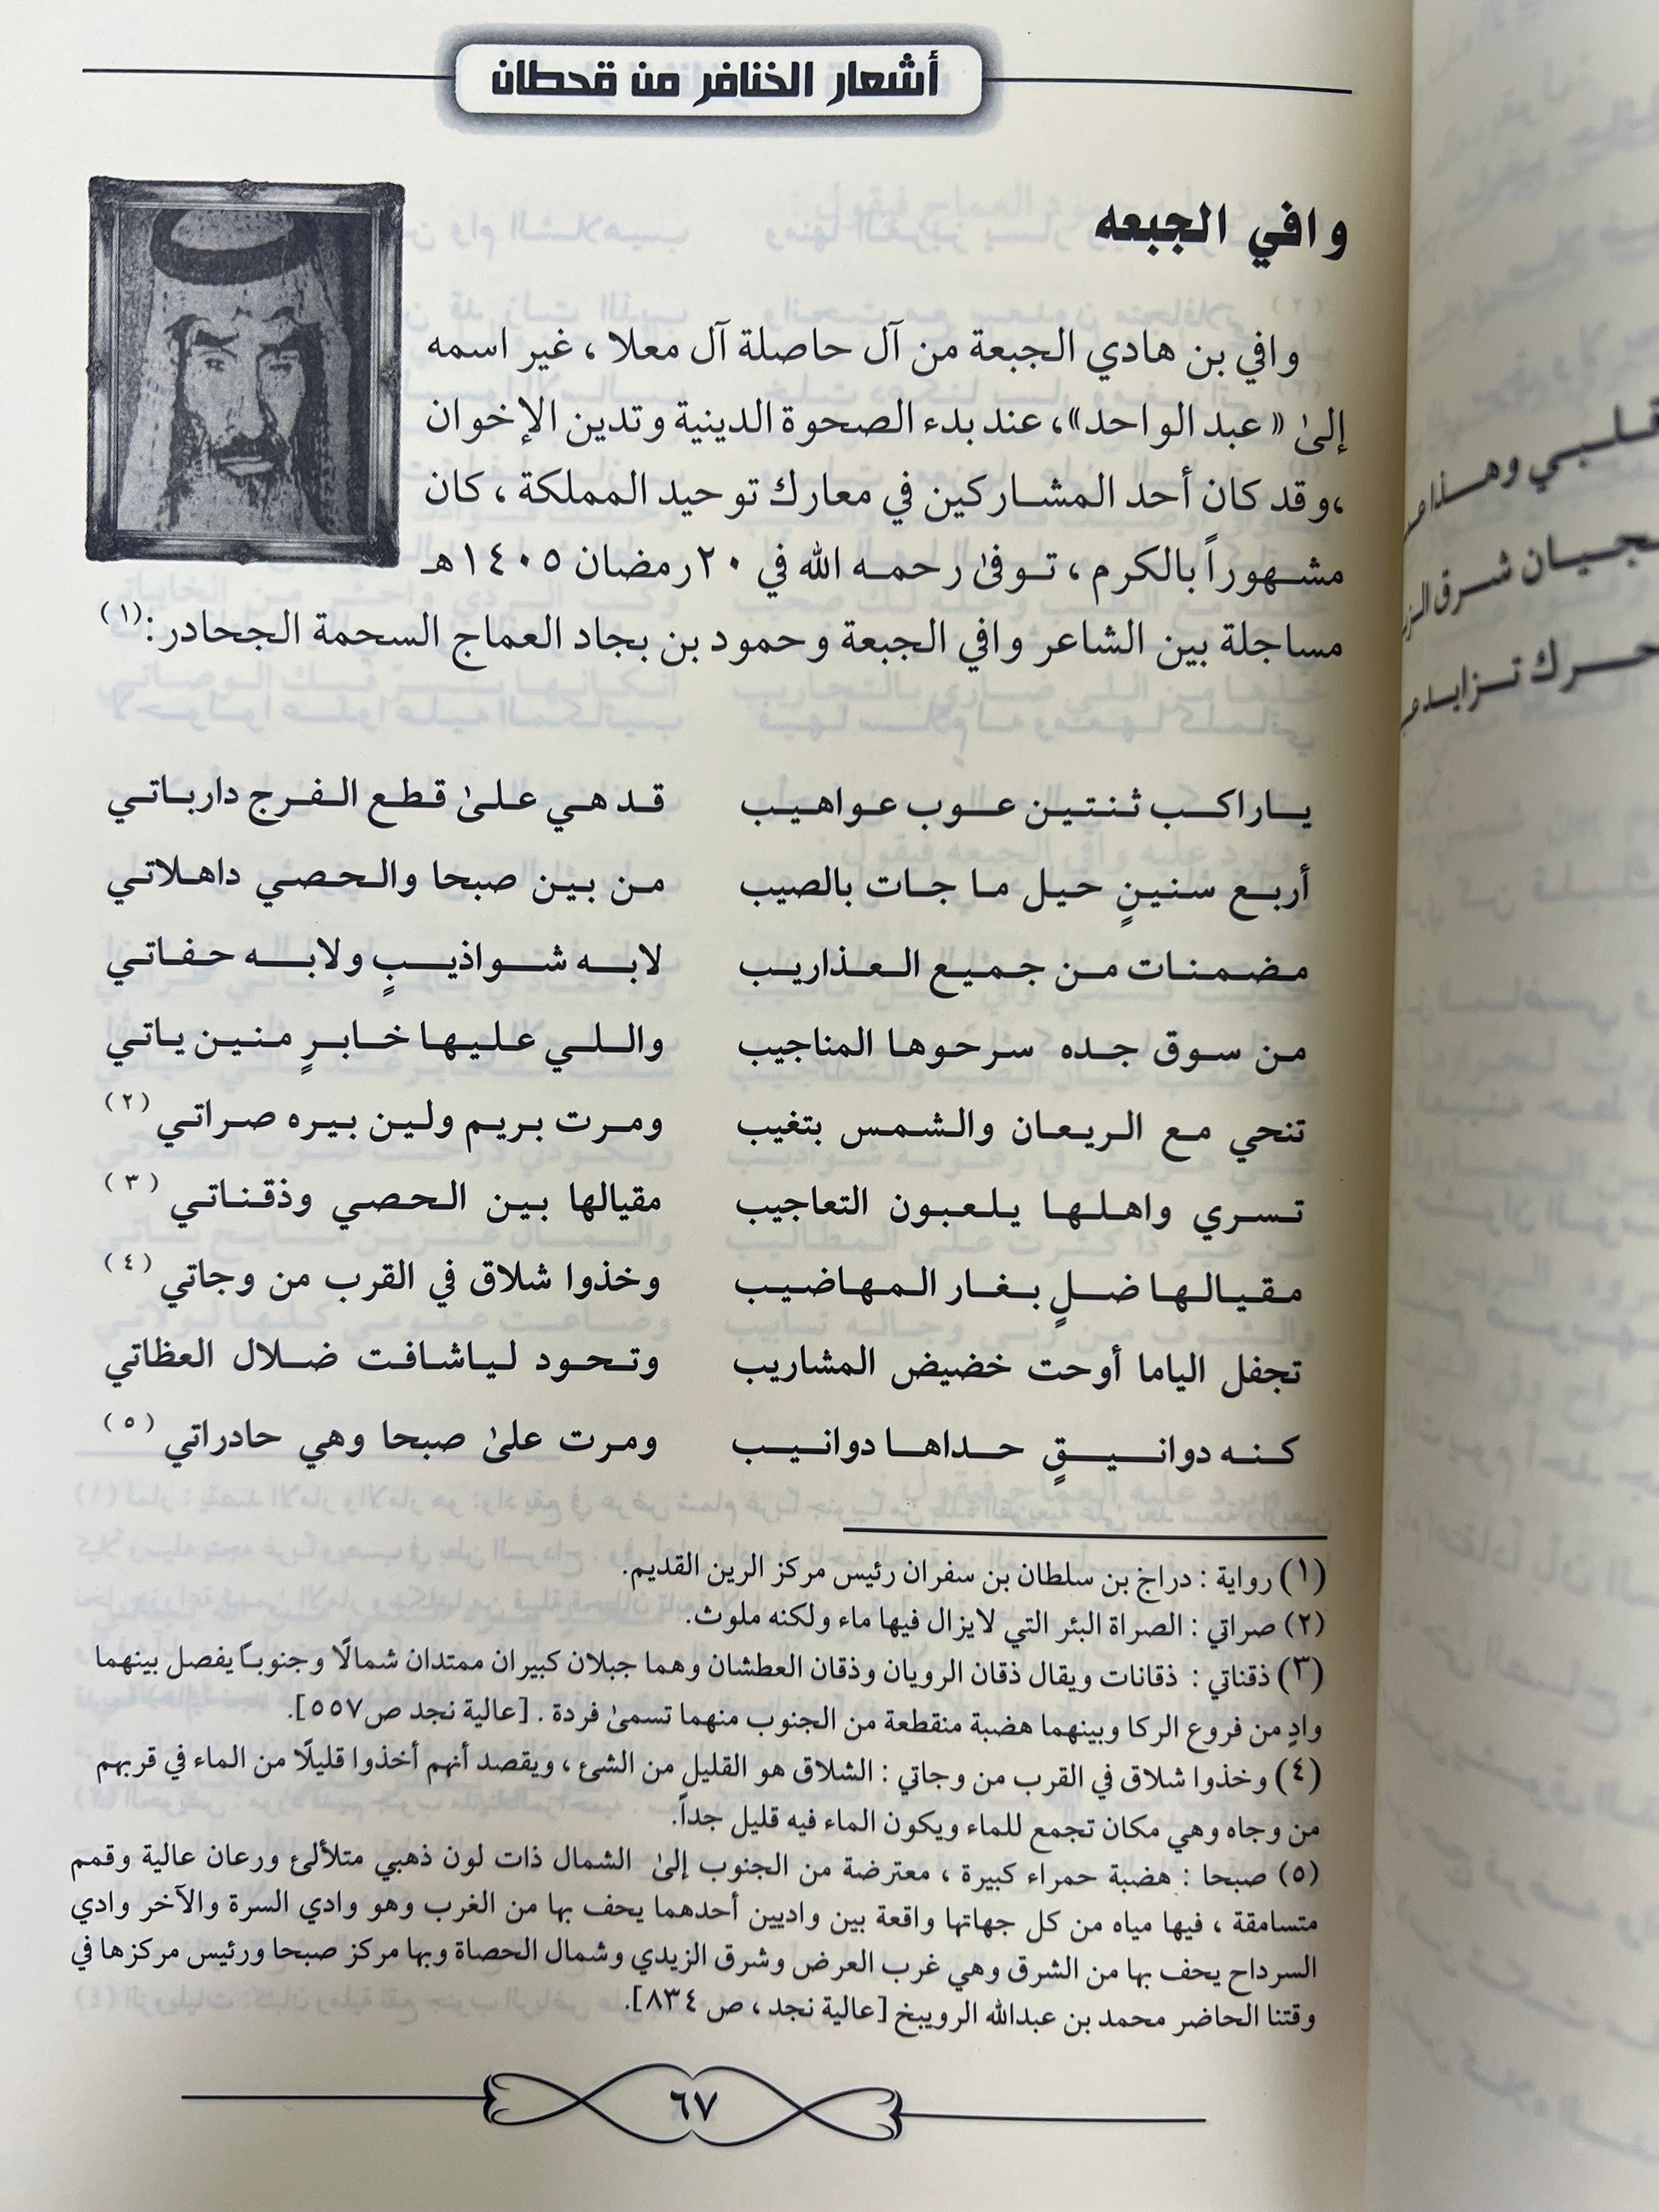 أشعار الخنافر من قحطان
وافي الجبعه
وافي بن هادي الجبعة من آل حاصلة آل معلا ، غير اسمه
إلىٰ « عبد الواحد»، عند بدء الصحوة الدينية وتدين الإخوان
،وقد كان أحد المشاركين في معارك توحيد المملكة ، كان
مشهوراً بالكرم ، توفىٰ رحمه الله في ٢٠ رمضان ١٤٠٥هـ
مساجلة بين الشاعر وافي الجبعة وحمود بن بجاد العماج السحمة الجحادر:(١)
ياراكب ثنتين عوب عواهيب قد هي علىٰ قطع الفرج دارباتي
أربع سنينٍ حيل ما جات بالصيب من بين صبحا والحصي داهلاتي
مضمنات من جميع العذاريب لابه شواذيبٍ ولابه حفاتي
من سوق جده سرحوها المناجيب واللي عليها خابرٍ منين ياتي
تنحي مع الريعان والشمس بتغيب ومرت بريم ولين بيره صراتي (٢)
تسري واهلها يلعبون التعاجيب مقيالها بين الحصي وذقناتي (٣)
مقيالها ضلٍ بغار المهاضيب وخذوا شلاق في القرب من وجاتي (٤)
تجفل الياما أوحت خضيض المشاريب وتحود لياشافت ضلال العظاتي
كنه دوانيقٍ حداها دوانيب ومرت علىٰ صبحا وهي حادراتي (٥)
(١) رواية : دراج بن سلطان بن سفران رئيس مركز الرين القديم.
(٢) صراتي : الصراة البئر التي لايزال فيها ماء ولكنه ملوث.
(٣) ذقناتي : ذقانات ويقال ذقان الرويان وذقان العطشان وهما جبلان كبيران ممتدان شمالًا وجنوباً يفصل بينهما
وادٍ من فروع الركا وبينهما هضبة منقطعة من الجنوب منهما تسمىٰ فردة . [عالية نجد ص٥٥٧].
(٤) وخذوا شلاق في القرب من وجاتي : الشلاق هو القليل من الشئ ، ويقصد أنهم أخذوا قليلًا من الماء في قربهم
من وجاه وهي مكان تجمع للماء ويكون الماء فيه قليل جداً.
(٥) صبحا : هضبة حمراء كبيرة ، معترضة من الجنوب إلىٰ الشمال ذات لون ذهبي متلألئ ورعان عالية وقمم
متسامقة ، فيها مياه من كل جهاتها واقعة بين واديين أحدهما يحف بها من الغرب وهو وادي السرة والآخر وادي
السرداح يحف بها من الشرق وهي غرب العرض وشرق الزيدي وشمال الحصاة وبها مركز صبحا ورئيس مركزها في
وقتنا الحاضر محمد بن عبدالله الرويبخ [عالية نجد ، ص ٨٣٤].
٦٧
قلبي وهذا
شرق
تزايد